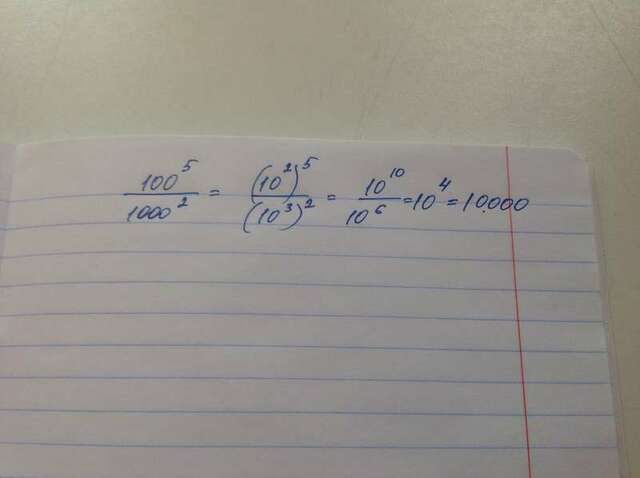 100⁵/1000² = (10²)⁵/(10³)² = 10¹⁰/10⁶ = 10⁴ = 10.000